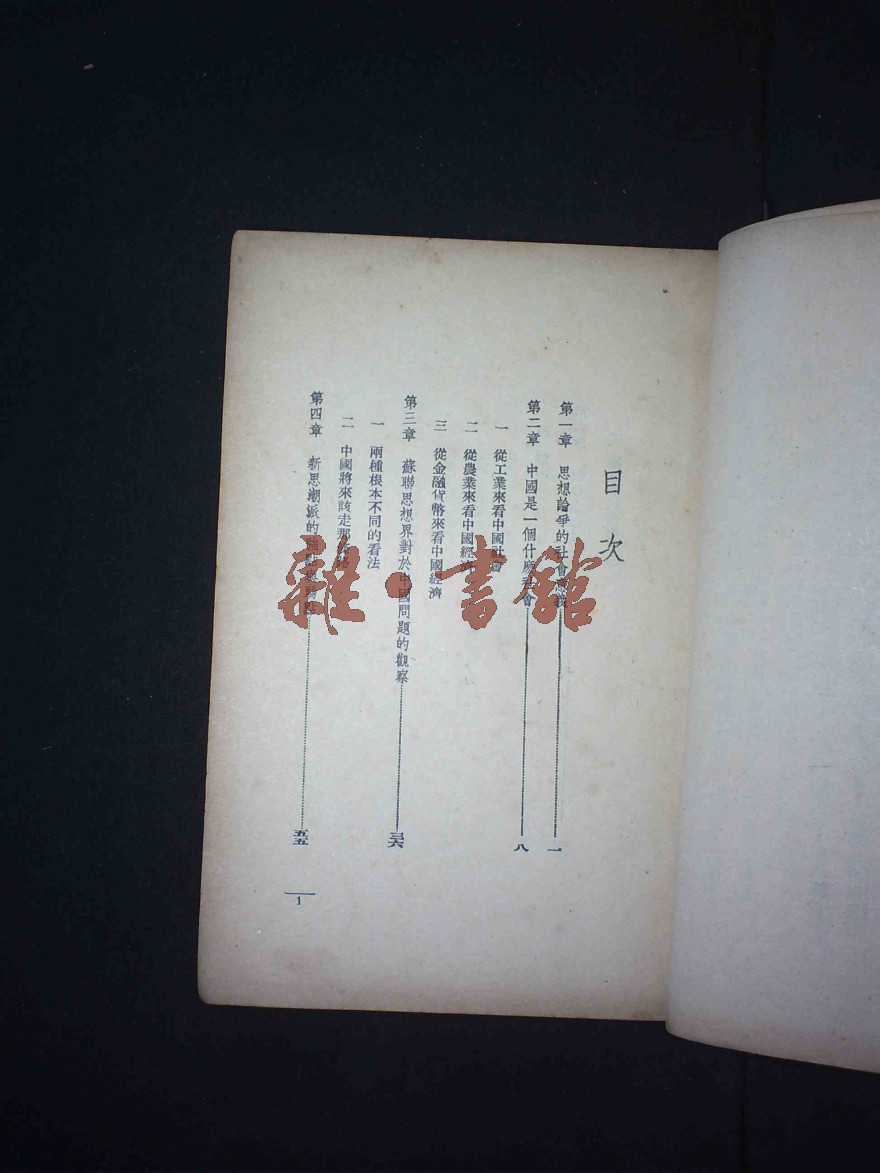 目次
第一章 思想論爭的社會意義 一
第二章 中國是一個什麼社會 八
一 從工業來看中國社會
二 從農業來看中國經濟
三 從金融貨幣來看中國經濟
第三章 蘇聯思想界對於中國問題的觀察 三六
一 兩種根本不同的看法
二 中國將來該走那條路
第四章 新思潮派的 五五
1
雜·書館